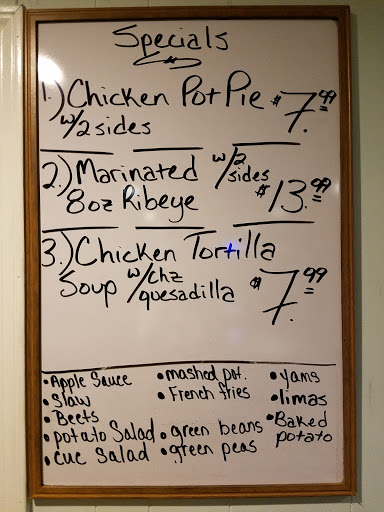 Specials
1.) Chicken Pot Pie $7.99
w/2 sides
2.) Marinated w/2 sides
8oz Ribeye $13.99
3.) Chicken Tortilla
Soup w/chz quesadilla $7.99
• Apple Sauce
• Slaw
• Beets
• potato Salad
• cuc Salad
• mashed pot.
• French fries
• green beans
• green peas
• yams
• limas
• Baked
potato